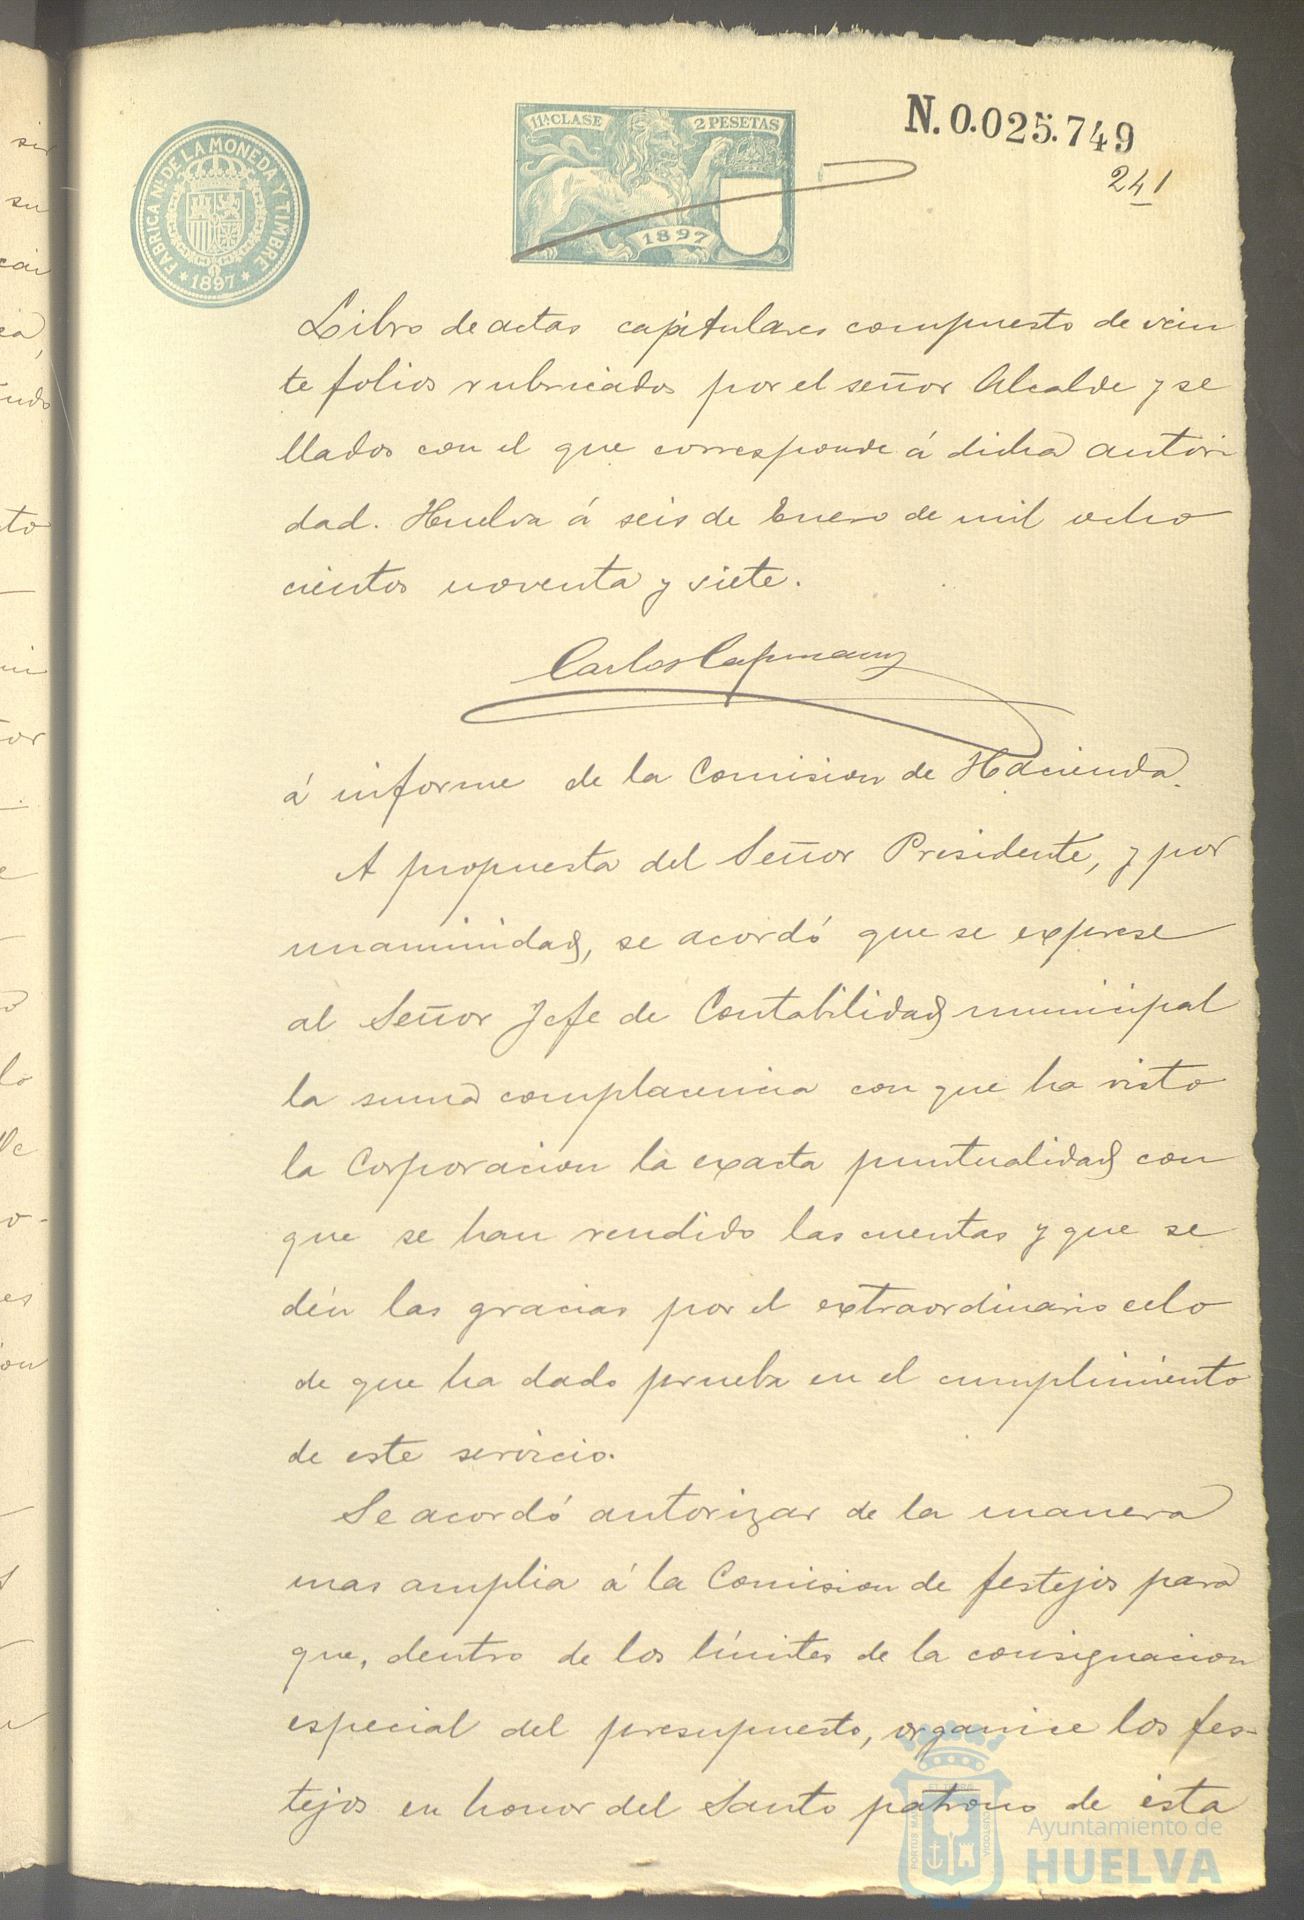 FABRICA Nl. DE LA MONEDA Y TIMBRE
* 1897 *
11ª CLASE 2 PESETAS
1897
N. 0.025.749
241
Libro de actas capitulares compuesto de vein
te folios rubricados por el señor Alcalde y se
llados con el que corresponde á dicha autori
dad. Huelva á seis de Enero de mil ocho
cientos noventa y siete.
Carlos Capmany
á informe de la Comision de Hacienda.
A propuesta del Señor Presidente, y por
unanimidad, se acordó que se exprese
al Señor Jefe de Contabilidad municipal
la suma complacencia con que ha visto
la Corporacion la exacta puntualidad con
que se han rendido las cuentas y que se
dén las gracias por el extraordinario celo
de que ha dado prueba en el cumplimiento
de este servicio.
Se acordó autorizar de la manera
mas amplia á la Comision de festejos para
que, dentro de los límites de la consignacion
especial del presupuesto, organice los fes-
tejos en honor del Santo patrono de esta
PORTUS MARIS ET TERRAE CUSTODIA
Ayuntamiento de
HUELVA